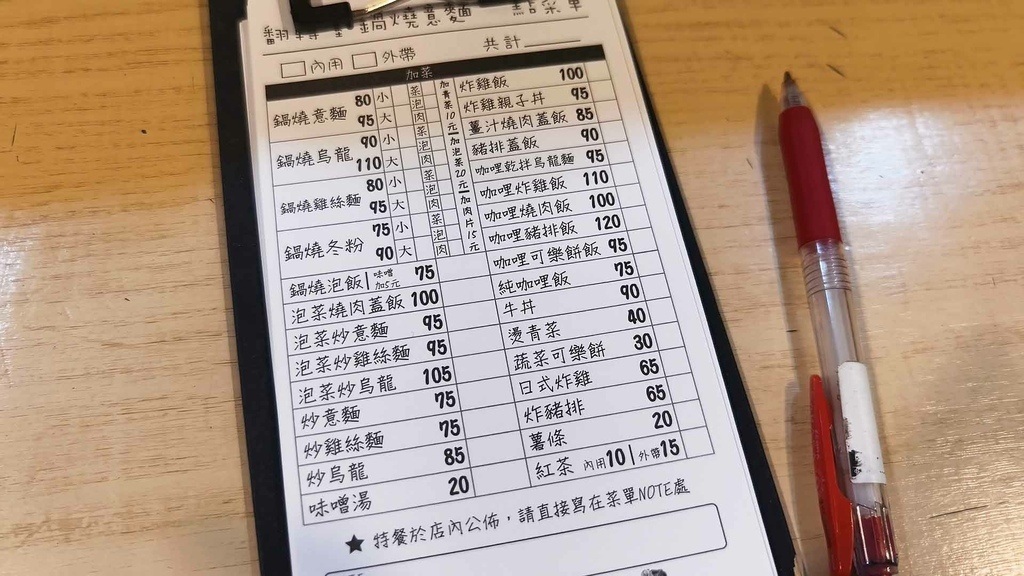 鍋燒意麵 點菜單
□內用 □外帶 共計
加菜
鍋燒意麵 80 小 95 大 菜 泡 肉
鍋燒烏龍 90 小 110 大 菜 泡 肉
鍋燒雞絲麵 80 小 95 大 菜 泡 肉
鍋燒冬粉 75 小 90 大 菜 泡 肉
加青菜10元|加泡菜20元|加肉片15元
鍋燒泡飯|味噌加5元 75
泡菜燒肉蓋飯 100
泡菜炒意麵 95
泡菜炒雞絲麵 95
泡菜炒烏龍 105
炒意麵 75
炒雞絲麵 75
炒烏龍 85
味噌湯 20
炸雞飯 100
炸雞親子丼 95
薑汁燒肉蓋飯 85
豬排蓋飯 90
咖哩乾拌烏龍麵 95
咖哩炸雞飯 110
咖哩燒肉飯 100
咖哩豬排飯 120
咖哩可樂餅飯 95
純咖哩飯 75
牛丼 90
燙青菜 40
蔬菜可樂餅 30
日式炸雞 65
炸豬排 65
薯條 20
紅茶 內用10|外帶15
★ 特餐於店內公佈，請直接寫在菜單NOTE處